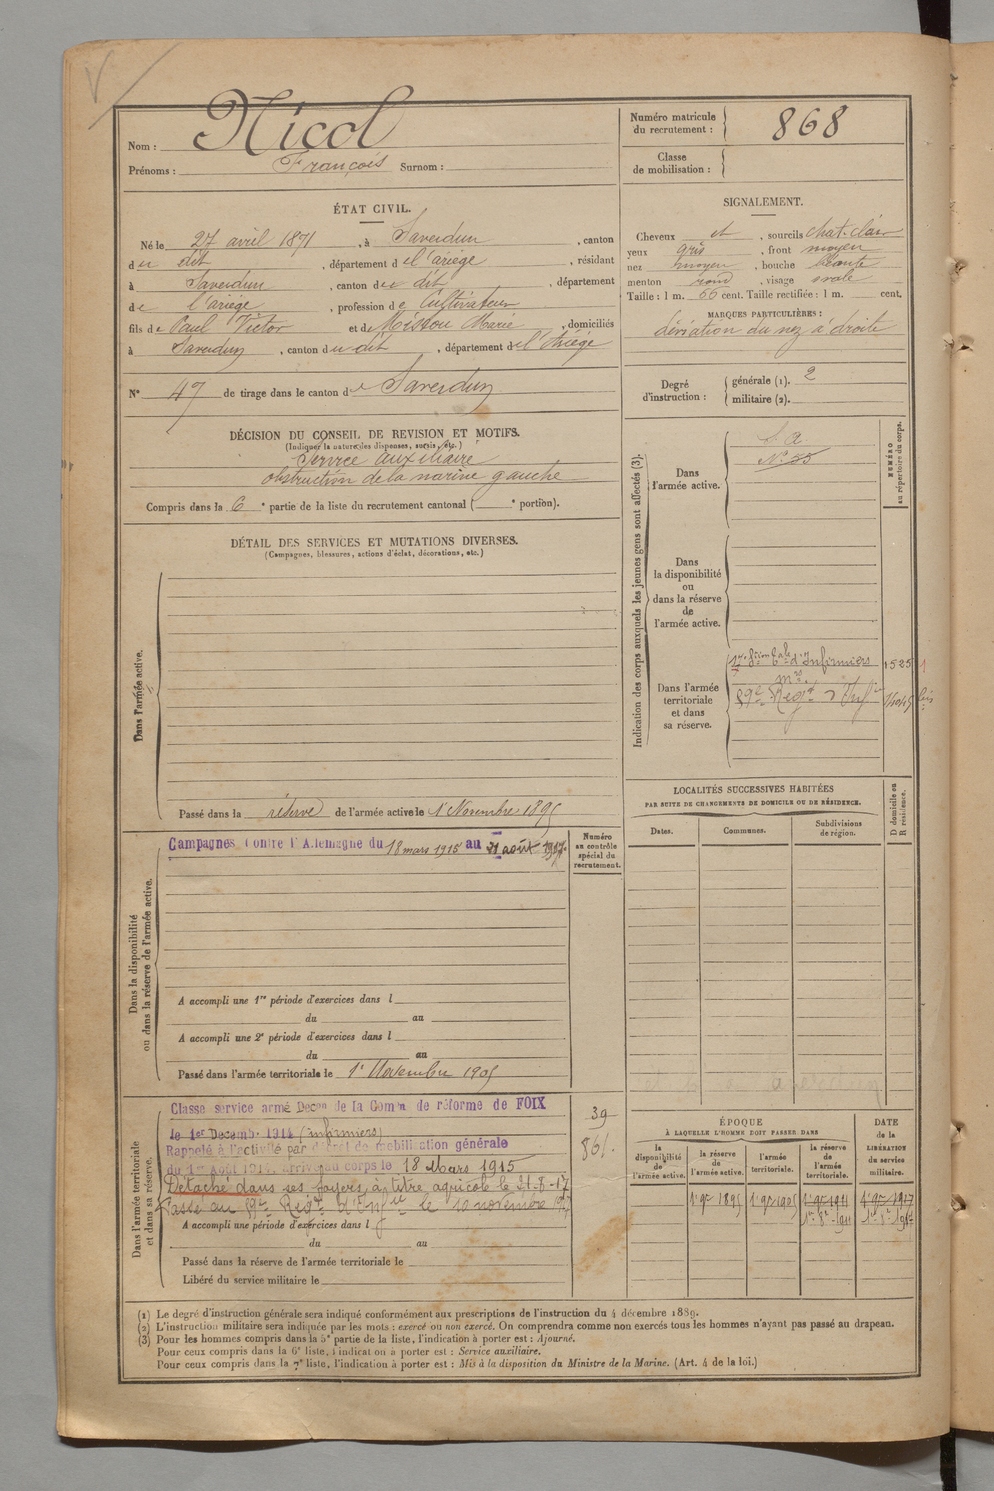 Nom : Nicol
Prénoms : François Surnom :
Numéro matricule
du recrutement : 868
Classe
de mobilisation :
ÉTAT CIVIL.
Né le 27 avril 1871, à Saverdun, canton
du dit, département de l'ariège, résidant
à Saverdun, canton de dit, département
de l'ariège, profession de Cultivateur
fils de Paul Victor et de Mistou Marie, domiciliés
à Saverdun, canton du dit, département de l'Ariège
N° 47 de tirage dans le canton de Saverdun
SIGNALEMENT.
Cheveux et, sourcils chat. clair
yeux gris, front moyen
nez moyen, bouche béante
menton rond, visage ovale
Taille : 1 m. 66 cent. Taille rectifiée : 1 m. cent.
MARQUES PARTICULIÈRES :
déviation du nez à droite
Degré
d'instruction :
générale (1). 2
militaire (2).
DÉCISION DU CONSEIL DE REVISION ET MOTIFS.
(Indiquer la nature des dispenses, sursis, etc.)
Service auxiliaire
obstruction de la narine gauche
Compris dans la 6e partie de la liste du recrutement cantonal ( e portion).
DÉTAIL DES SERVICES ET MUTATIONS DIVERSES.
(Campagnes, blessures, actions d'éclat, décorations, etc.)
Dans l'armée active.
Passé dans la réserve de l'armée active le 1r Novembre 1895
Indication des corps auxquels les jeunes gens sont affectés (3).
NUMÉRO
au répertoire du corps.
Dans
l'armée active.
S. A
N° 55
Dans
la disponibilité
ou
dans la réserve
de
l'armée active.
Dans l'armée
territoriale
et dans
sa réserve.
d'Infirmiers 1525
mres
Regt d'Infie bis
LOCALITÉS SUCCESSIVES HABITÉES
PAR SUITE DE CHANGEMENTS DE DOMICILE OU DE RÉSIDENCE.
Dates.
Communes.
Subdivisions
de région.
D domicile ou
R résidence.
Dans la disponibilité
ou dans la réserve de l'armée active.
Campagnes Contre l'Allemagne du 18 mars 1915 au 21 août 1917.
Numéro
au contrôle
spécial du
recrutement.
A accompli une 1re période d'exercices dans l
du au
A accompli une 2e période d'exercices dans l
du au
Passé dans l'armée territoriale le 1r Novembre 1905
Dans l'armée territoriale
et dans sa réserve.
Classé service armé Decon de la Comon de réforme de FOIX
le 1er Decemb. 1914 (infirmiers)
Rappelé à l'activité par décret de mobilisation générale
du 1er août 1914. arrivé au corps le 18 Mars 1915
Détaché dans ses foyers à titre agricole le 21-8-17
Passé au Regt d'Infie le 10 novembre 1917
A accompli une période d'exercices dans l
du au
Passé dans la réserve de l'armée territoriale le
Libéré du service militaire le
39
861.
ÉPOQUE
À LAQUELLE L'HOMME DOIT PASSER DANS
la
disponibilité
de
l'armée active.
la réserve
de
l'armée active.
l'armée
territoriale.
la réserve
de
l'armée
territoriale.
DATE
de la
LIBÉRATION
du service
militaire.
1r 9bre 1895 1r 9bre 1905 1r 9bre 1911 1r 9bre 1917
(1) Le degré d'instruction générale sera indiqué conformément aux prescriptions de l'instruction du 4 décembre 1889.
(2) L'instruction militaire sera indiquée par les mots : exercé ou non exercé. On comprendra comme non exercés tous les hommes n'ayant pas passé au drapeau.
(3) Pour les hommes compris dans la 5e partie de la liste, l'indication à porter est : Ajourné.
Pour ceux compris dans la 6e liste, l'indication à porter est : Service auxiliaire.
Pour ceux compris dans la 7e liste, l'indication à porter est : Mis à la disposition du Ministre de la Marine. (Art. 4 de la loi.)